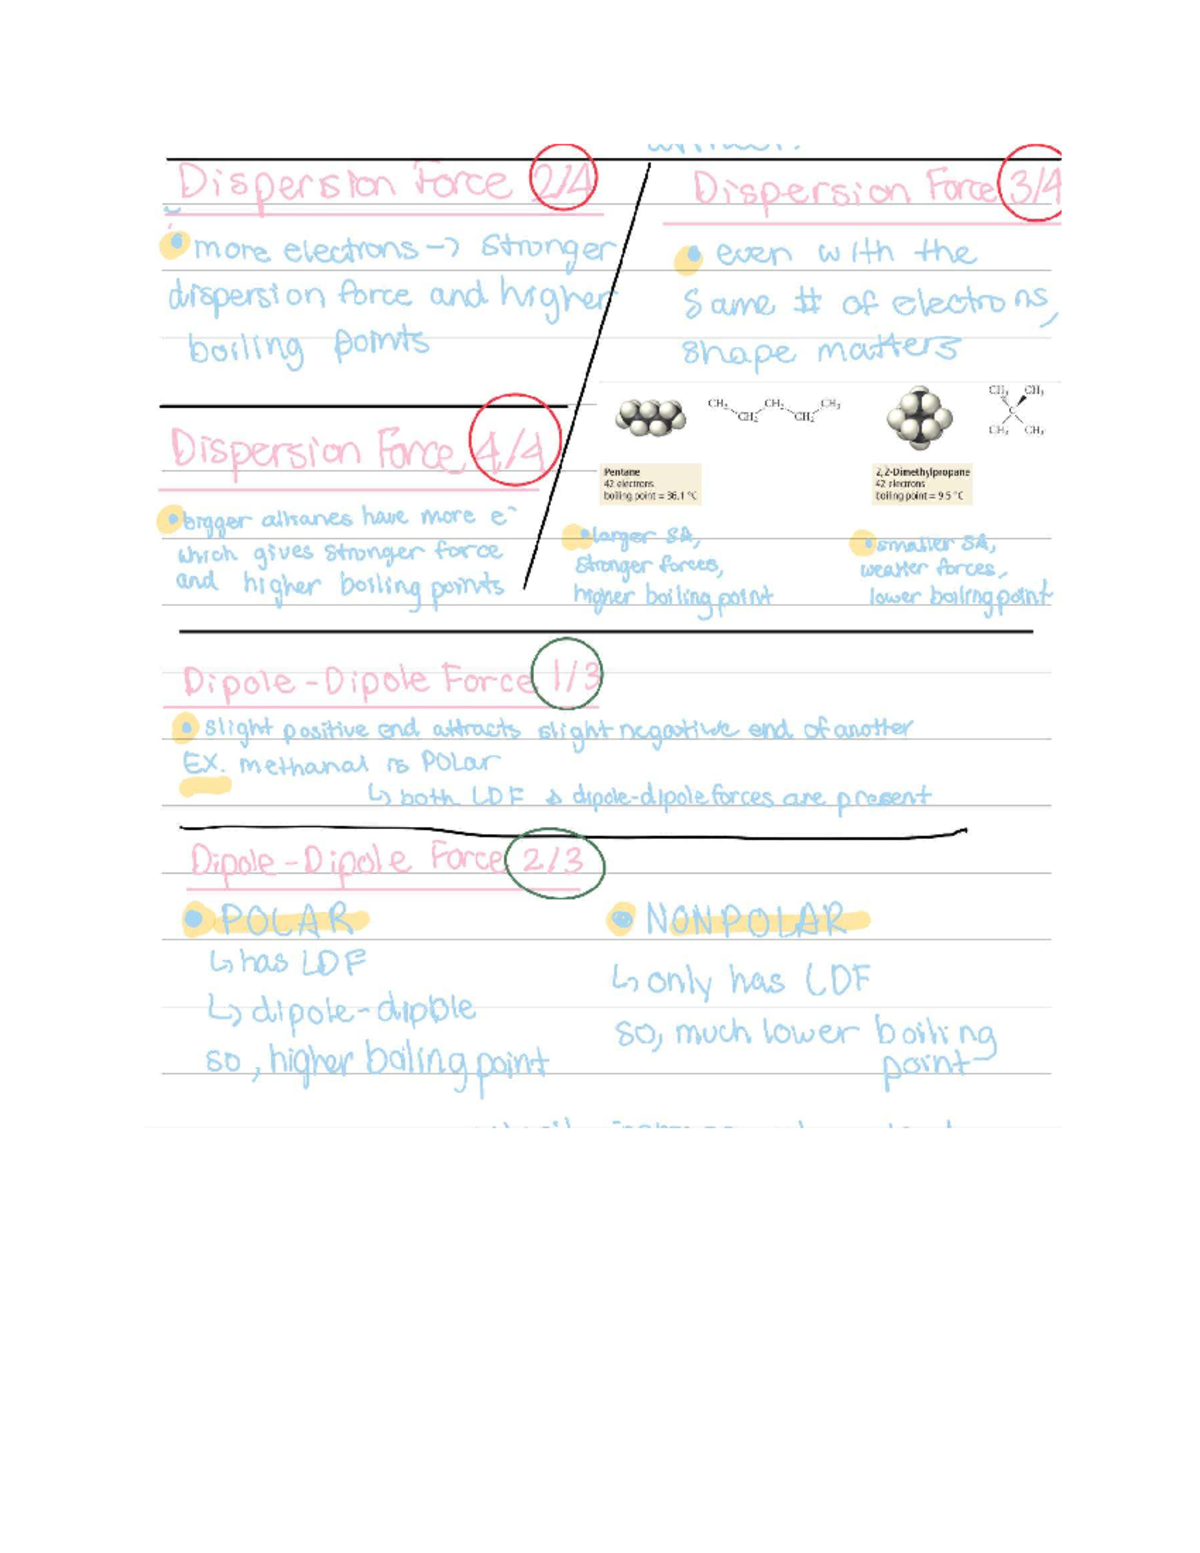 Dispersion Force 2/4
more electrons -> stronger
dispersion force and higher
boiling points
Dispersion Force 3/4
even with the
same # of electrons,
shape matters
CH₃ CH₂ CH₃
CH₂ CH₂
CH₃ CH₃
C
CH₃ CH₃
Pentane
42 electrons
boiling point = 36.1 °C
2,2-Dimethylpropane
42 electrons
boiling point = 9.5 °C
larger SA,
stronger forces,
higher boiling point
smaller SA,
weaker forces,
lower boiling point
Dispersion Force 4/4
bigger alkanes have more e⁻
which gives stronger force
and higher boiling points
Dipole-Dipole Force 1/3
slight positive end attracts slight negative end of another
EX. methanal is POLar
↳ both LDF & dipole-dipole forces are present
Dipole-Dipole Force 2/3
POLAR
↳ has LDF
↳ dipole-dipole
so, higher boiling point
NONPOLAR
↳ only has LDF
so, much lower boiling
point